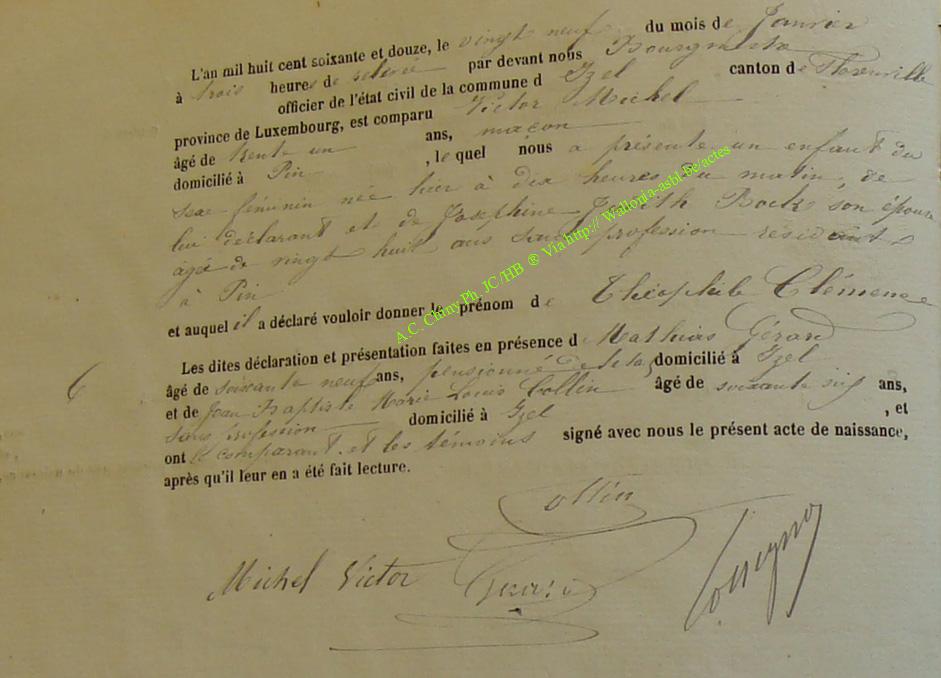 L'an mil huit cent soixante et douze, le vingt neuf du mois de Janvier
à trois heures de relevée par devant nous Bourgmestre
officier de l'état civil de la commune d Izel canton de Florenville
province de Luxembourg, est comparu Victor Michel
âgé de trente un ans, maçon
domicilié à Pin , le quel nous a présenté un enfant du
sexe féminin née hier à dix heures du matin, de
lui déclarant et de Josephine Judith Bock son épouse
âgée de vingt huit ans sans profession résidants
à Pin
et auquel il a déclaré vouloir donner le prénom de Théophile Clémence
Les dites déclaration et présentation faites en présence d Mathias Gérard
âgé de soixante neuf ans, pensionné de l'état, domicilié à Izel
6
et de Jean Baptiste Marie Louis Collin âgé de soixante six ans,
sans profession domicilié à Izel , et
ont le comparant et les témoins signé avec nous le présent acte de naissance,
après qu'il leur en a été fait lecture.
Collin
Michel Victor Gérard
A.C. Chiny Ph. JC/HB ® Via http:// Wallonia-asbl-be/actes